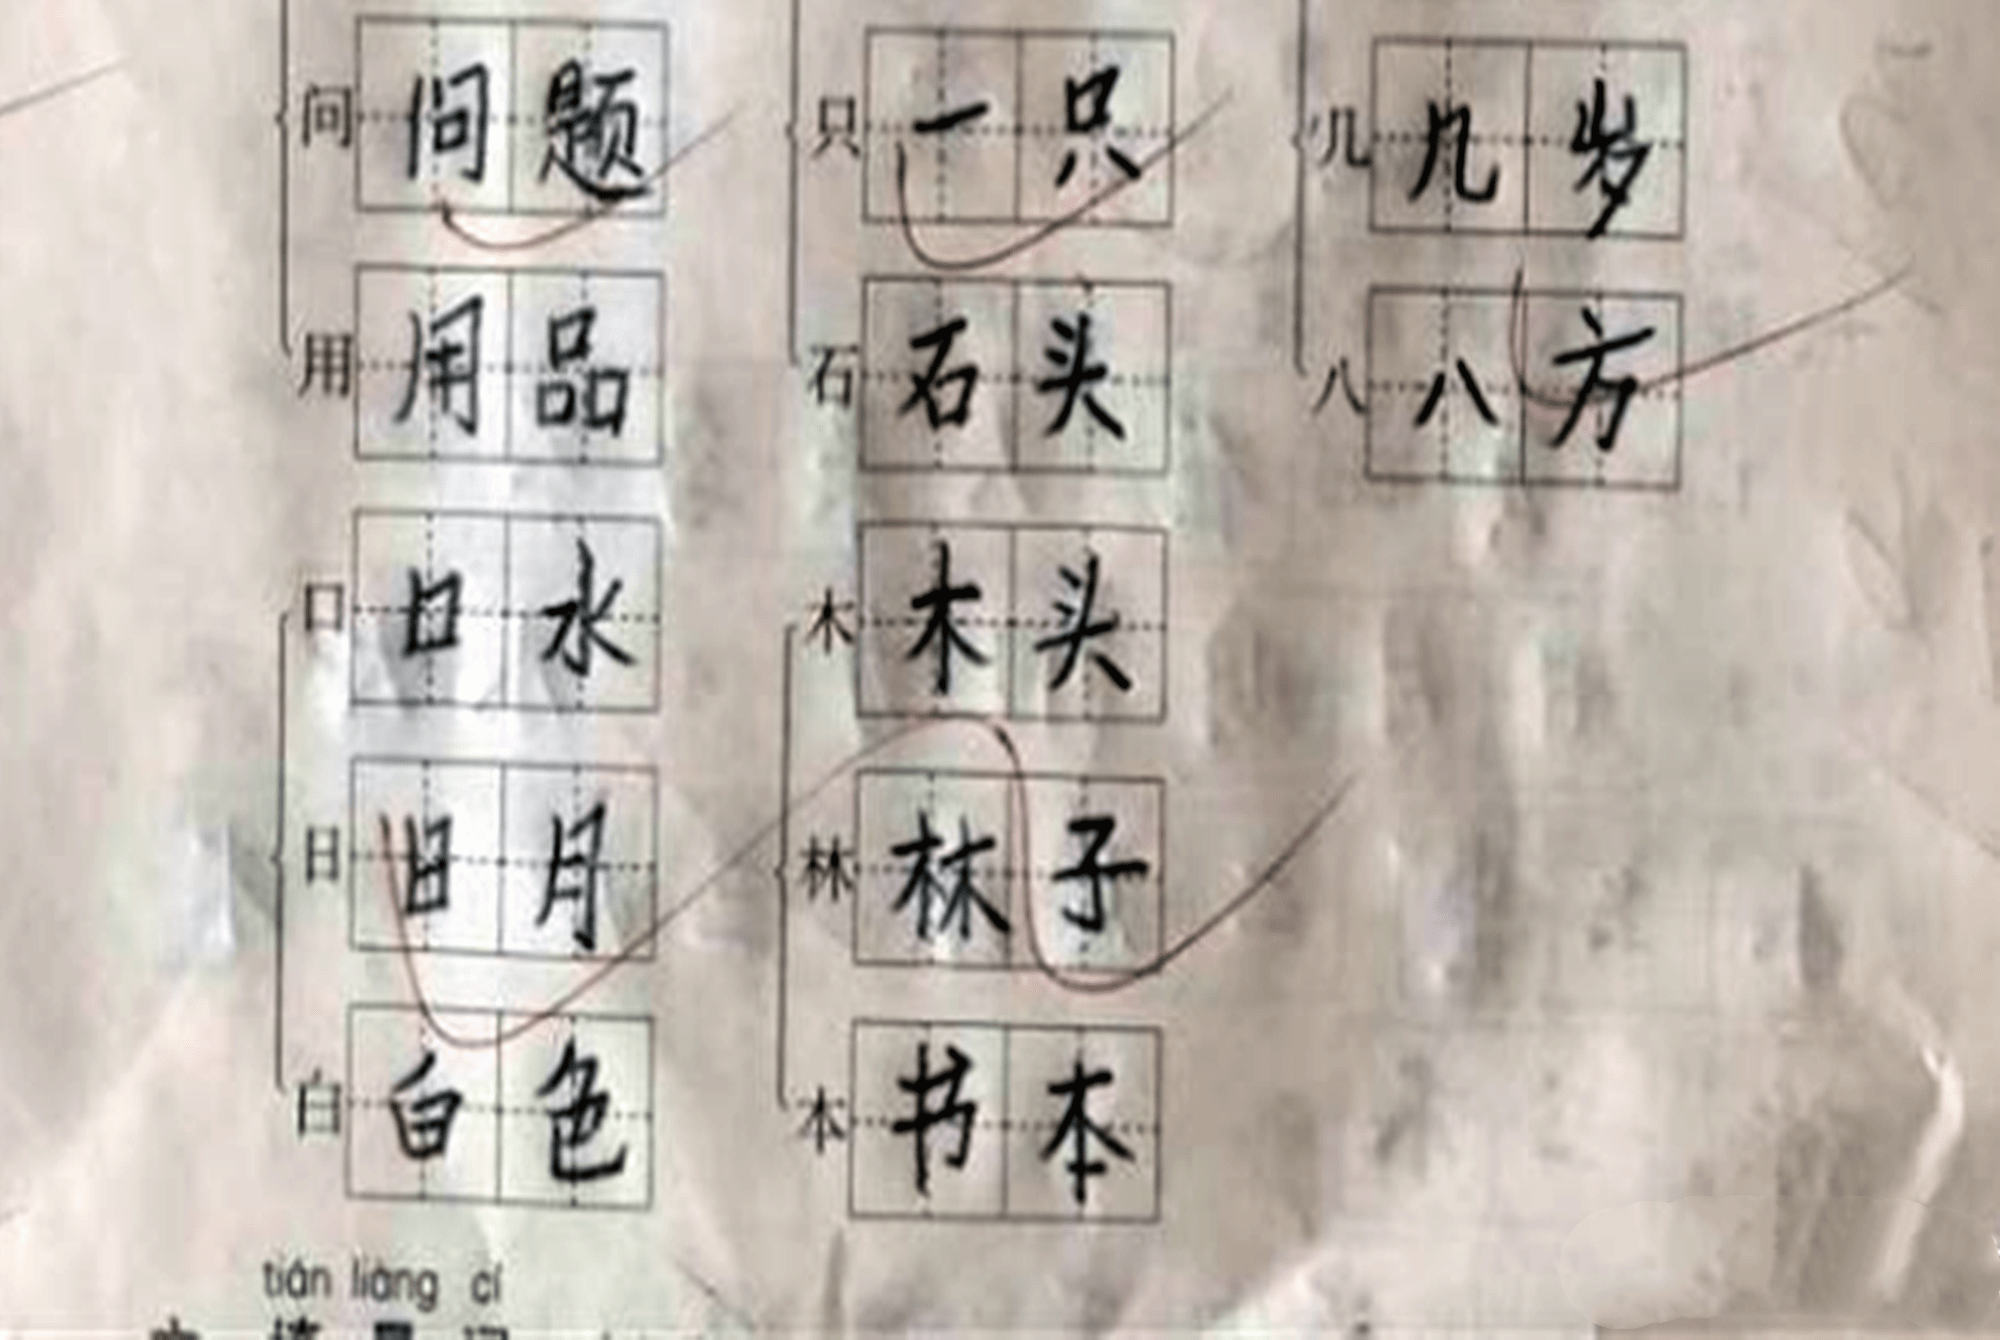 问 问题 只 一只 几 几岁
用 用品 石 石头 八 八方
口 口水 木 木头
日 日月 林 林子
白 白色 本 书本
tián liàng cí
填 量 词